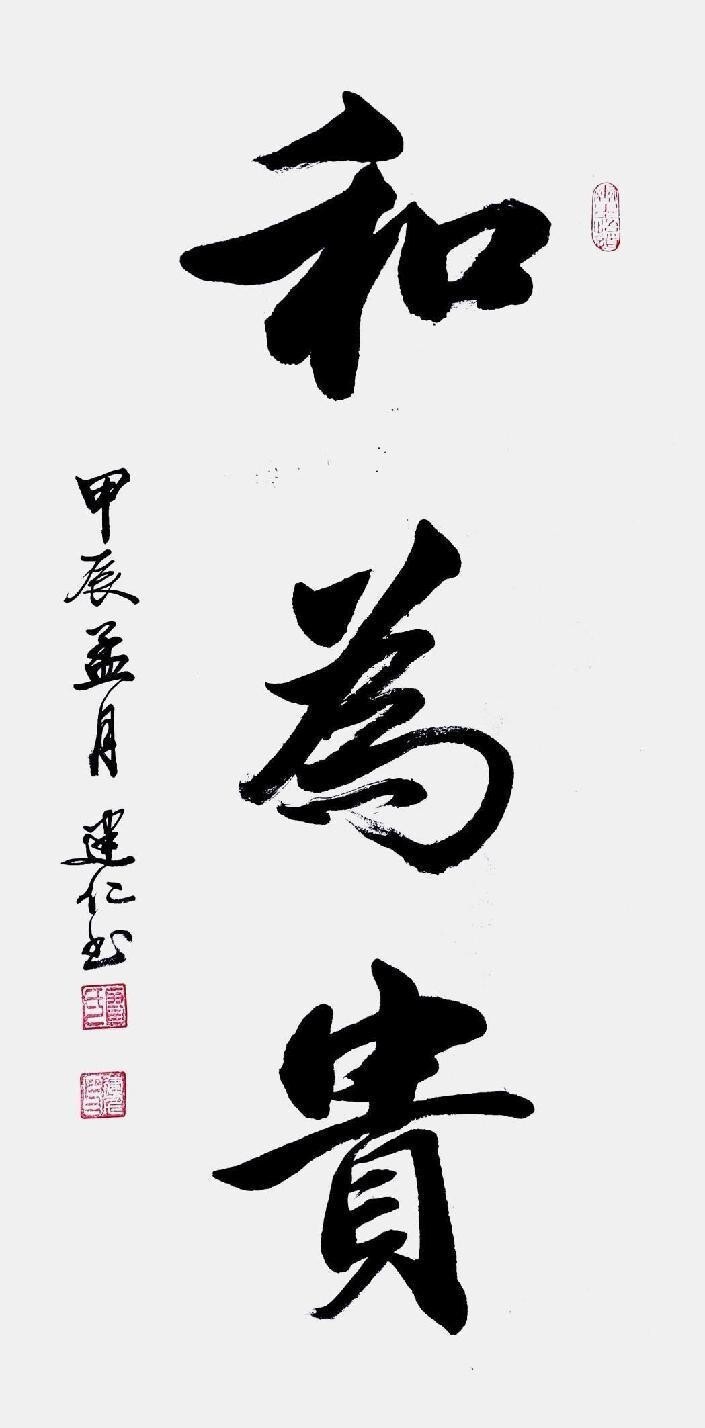 和為貴
甲辰孟月建仁书